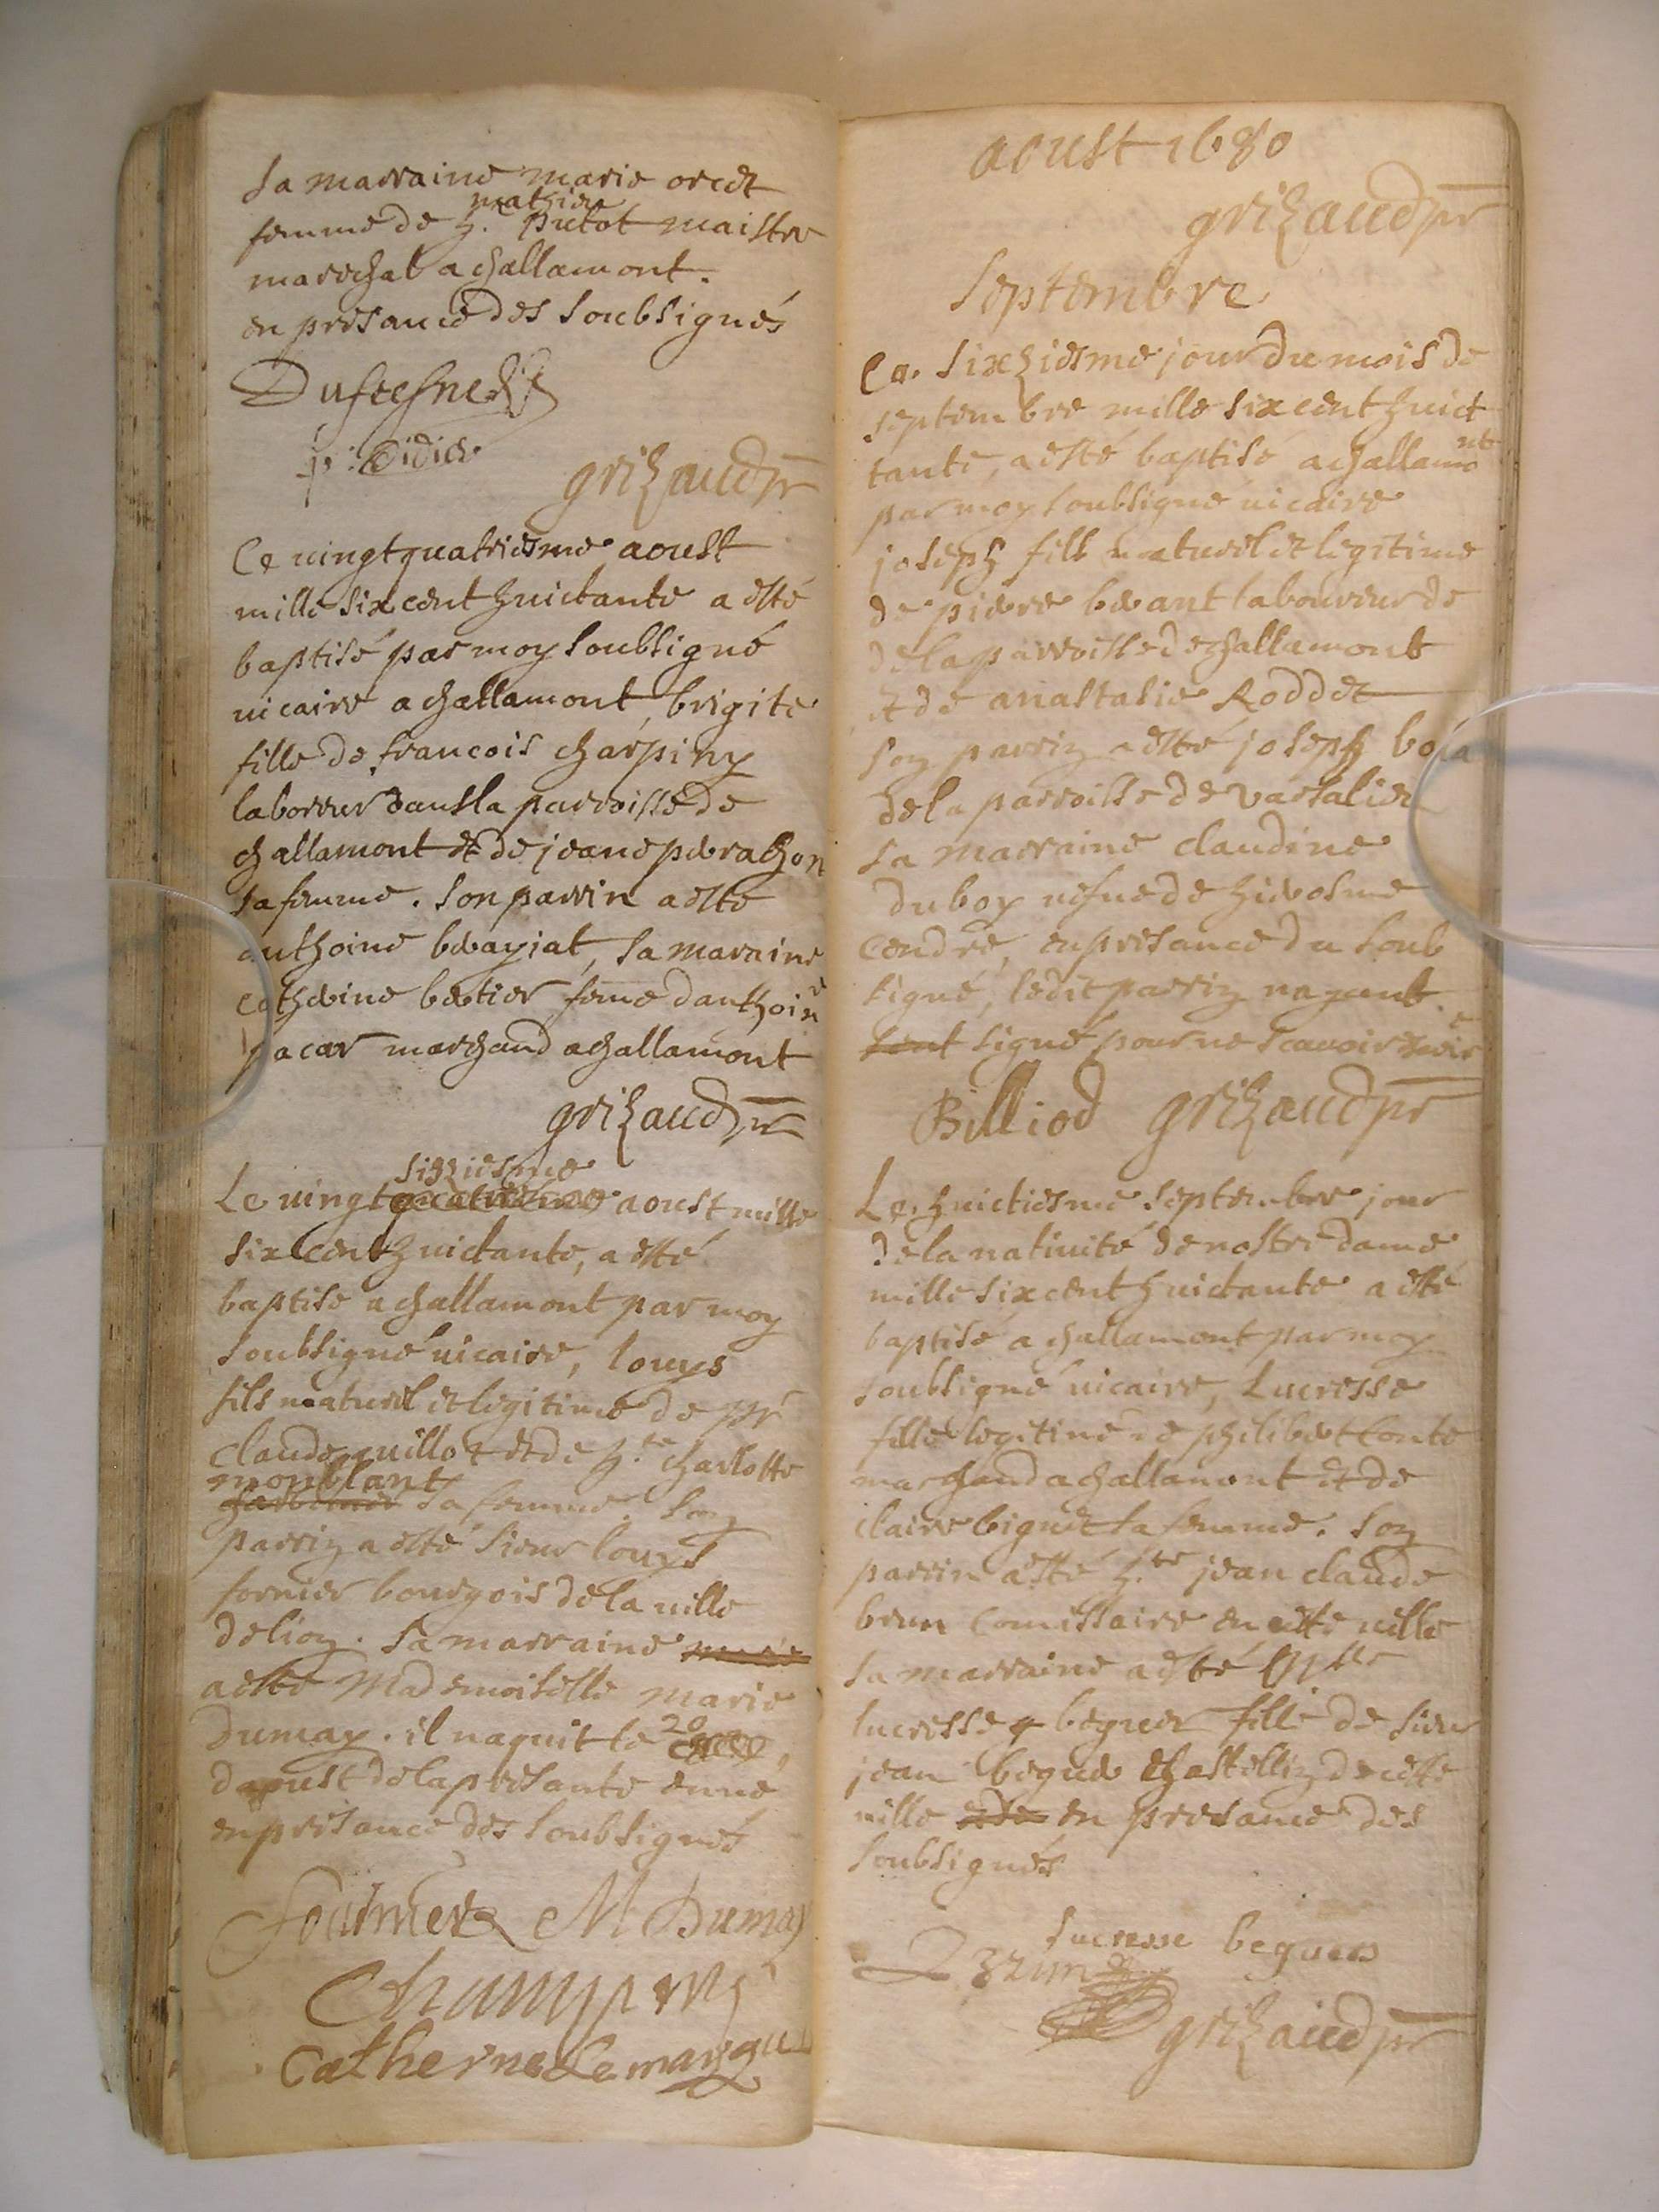 sa marraine marie orcet
mathieu
femme de h. putot maistre
marechal a challamont.
en presance des soubsignés
Dufresne
p. Didier
grizaud pr
Ce vingtquatriesme aoust
mille six cent huictante a esté
baptisé par moy soubsigné
vicaire a challamont, brigite
fille de francois charpiny
laboreur dans la parroisse de
challamont et de jeane perachon
sa femme. son parrin a esté
anthoine berayiat, sa maraine
catherine bertier feme danthoine
pacar marchand a challamont
grizaud pr
sizziesme
Le vingt quatriesme aoust mille
six cent huictante, a esté
baptisé a challamont par moy
soubsigné vicaire, louys
fils naturel et legitime de pr
claude guillot et de h.te charlotte
monblant
sa femme. son
parrin a esté sieur louys
fornier bourgois de la ville
de lion. sa marraine marie
a esté Mademoiselle marie
Dumay. il naquit le 20
daoust de la presante anné
en presance des soubsignés
Fournier M Dumay
Champ
Catherine Le marg
aoust 1680
grizaud pr
Septembre
Ce sixziesme jour du mois de
septembre mille six cent huict
tante, a esté baptisé a challamont
par moy soubsigné vicaire
joseph fils naturel et legitime
de pierre berant laboureur de
de la parroisse de challamont
et de anastasie Roddet
son parrin a esté joseph
de la parroisse de varsalieu
sa marraine claudine
duboy vefue de hierosme
Cendre, en presance du soub
signé, ledit parrin nayant
sont signé pour ne scavoir
Billiod grizaud pr
Le huictiesme septembre jour
de la natiuité de nostre dame
mille six cent huictante a esté
baptisé a challamont par moy
soubsigné vicaire, Lucresse
fille legitime de philibert Conte
marchand a challamont et de
claire biguet sa femme. son
parrin a esté h.te jean claude
brun Comissaire en cette ville
sa marraine a esté
lucresse beguer fille de sieur
jean beguer chastellin de cette
ville et de en presance des
soubsignés
lucresse beguer
Brun
grizaud pr